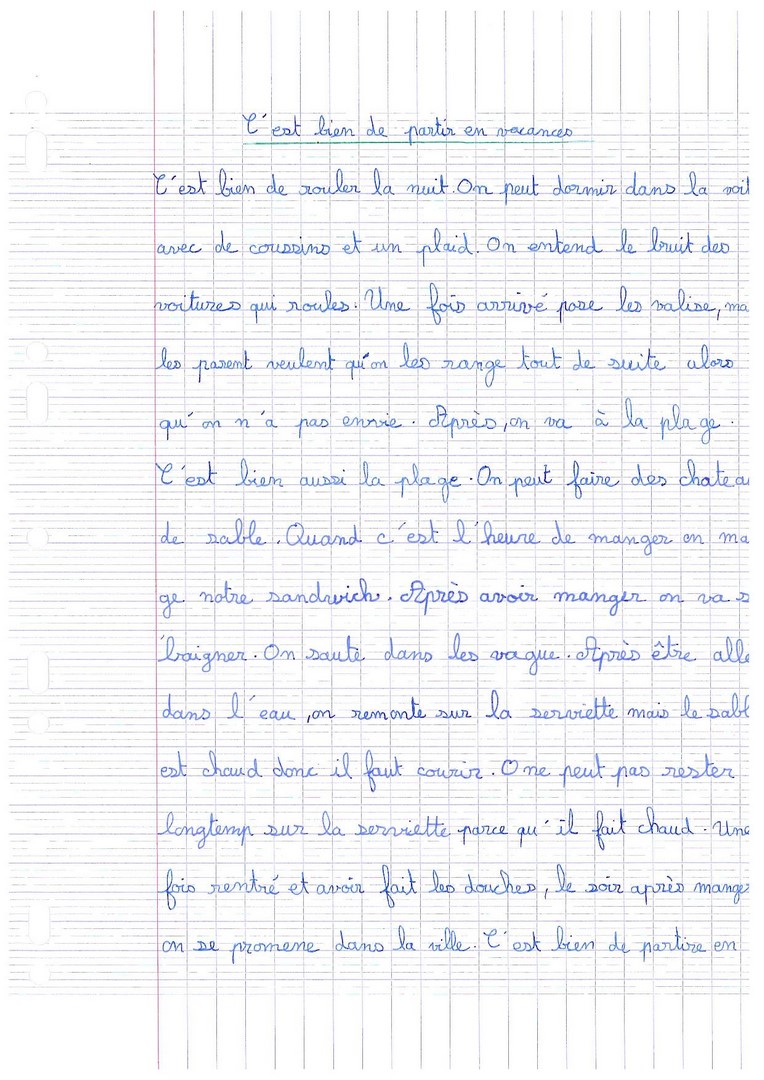 C'est bien de partir en vacances
C'est bien de rouler la nuit. On peut dormir dans la voit
avec de coussins et un plaid. On entend le bruit des
voitures qui roules. Une fois arrivé pose les valise, ma
les parent veulent qu'on les range tout de suite alors
qu'on n'a pas envie. Après, on va à la plage.
C'est bien aussi la plage. On peut faire des chateau
de sable. Quand c'est l'heure de manger on ma
ge notre sandwich. Après avoir manger on va s
baigner. On saute dans les vague. Après être allé
dans l'eau, on remonte sur la serviette mais le sabl
est chaud donc il faut courir. O ne peut pas rester
longtemp sur la serviette parce qu'il fait chaud. Une
fois rentré et avoir fait les douches, le soir après manger
on se promene dans la ville. C'est bien de partire en